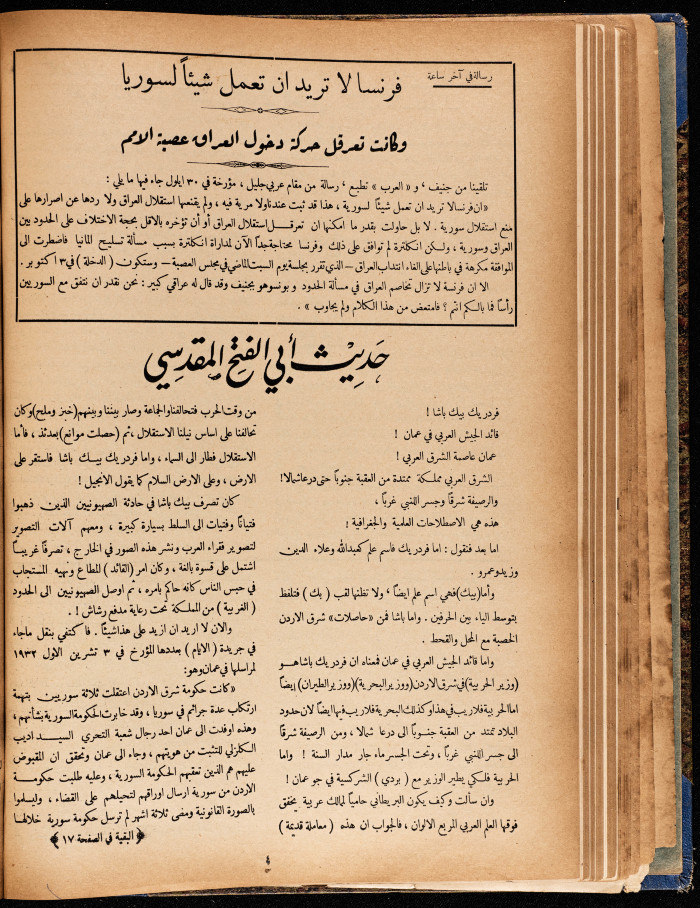 رسالة في آخر ساعة
فرنسا لا تريد ان تعمل شيئاً لسوريا
وكانت تعرقل حركة دخول العراق عصبة الامم
تلقينا من جنيف ، و « العرب » تطبع ، رسالة من مقام عربي جليل ، مؤرخة في ٣٠ ايلول جاء فيها ما يلي :
« ان فرنسا لا تريد ان تعمل شيئاً لسورية ، هذا قد ثبت عندنا ولا مرية فيه ، ولم يقنعها استقلال العراق ولا ردها عن اصرارها على
منع استقلال سورية . لا بل حاولت بقدر ما امكنها ان تعرقل استقلال العراق أو أن تؤخره بالاقل بحجة الاختلاف على الحدود بين
العراق وسورية ، ولكن انكلترة لم توافق على ذلك وفرنسا محتاجة جداً الآن لمداراة انكلترة بسبب مسألة تسليح المانيا فاضطرت الى
الموافقة مكرهة في باطنها على الغاء انتداب العراق – الذي تقرر بجلسة يوم السبت الماضي في مجلس العصبة – وستكون ( الدخلة ) في ٣ اكتوبر .
الا ان فرنسة لا تزال تخاصم العراق في مسألة الحدود و بونسو هو بجنيف وقد قال له عراقي كبير : نحن نقدر ان نتفق مع السوريين
رأساً فما بالكم انتم ؟ فامتعض من هذا الكلام ولم يجاوب » .
حَدِيْث أبي الفتح المقدسي
فردريك بيك باشا !
قائد الجيش العربي في عمان !
عمان عاصمة الشرق العربي !
الشرق العربي مملكة ممتدة من العقبة جنوباً حتى درعا شمالا !
والرصيفة شرقاً وجسر اللنبي غرباً ،
هذه هي الاصطلاحات العلمية والجغرافية !
اما بعد فنقول : اما فردريك فاسم علم كعبدالله وعلاء الدين
وزيد وعمرو .
وأما (بيك) فهي اسم علم ايضاً ، ولا تظنها لقب ( بك ) فتلفظ
بتوسط الياء بين الحرفين . واما باشا فمن « حاصلات » شرق الاردن
الخصبة مع المحل والقحط .
واما قائد الجيش العربي في عمان فمعناه ان فردريك باشا هو
(وزير الحربية) في شرق الاردن (ووزير البحرية) (ووزير الطيران) ايضاً
اما الحربية فلا ريب في هذا وكذلك البحرية فلا ريب فيها ايضاً لان حدود
البلاد تمتد من العقبة جنوباً الى درعا شمالا ، ومن الرصيفة شرقاً
الى جسر اللنبي غرباً ، وتحت الجسر ماء جار مدار السنة ! واما
الحربية فلكي يطير الوزير مع ( بردي ) الشركسية في جو عمان !
وان سألت وكيف يكون البريطاني حامياً لمالك عربية يخفق
فوقها العلم العربي المربع الالوان ، فالجواب ان هذه ( معاملة قديمة )
من وقت الحرب فتحالفنا والجماعة وصار بيننا وبينهم (خبز وملح) وكان
تحالفنا على اساس نيلنا الاستقلال ، ثم (حصلت موانع) بعدئذ ، فأما
الاستقلال فطار الى السماء ، واما فردريك بيك باشا فاستقر على
الارض ، وعلى الارض السلام كما يقول الانجيل !
كان تصرف بيك باشا في حادثة الصهيونيين الذين ذهبوا
فتياناً وفتيات الى السلط بسيارة كبيرة ، ومعهم آلات التصوير
لتصوير فقراء العرب ونشر هذه الصور في الخارج ، تصرفاً غريباً
اشتمل على قسوة بالغة ، وكان امر (القائد) المطاع ونهيه المستجاب
في حبس الناس كانه حاكم بامره ، ثم اوصل الصهيونيين الى الحدود
( الغربية ) من المملكة تحت رعاية مدفع رشاش ! .
والان لا اريد ان ازيد على هذا شيئاً . فاكتفي بنقل ما جاء
في جريدة ( الايام ) بعددها المؤرخ في ٣ تشرين الاول ١٩٣٢
لمراسلها في عمان وهو :
« كانت حكومة شرق الاردن اعتقلت ثلاثة سوريين بتهمة
ارتكاب عدة جرائم في سوريا ، وقد خابرت الحكومة السورية بشأنهم ،
وهذه اوفدت الى عمان احد رجال شعبة التحري السيد اديب
الكلزي للتثبت من هويتهم ، وجاء الى عمان وتحقق ان المقبوض
عليهم هم الذين تعقبهم الحكومة السورية ، وعليه طلبت حكومة
الاردن من سورية ارسال اوراقهم لتحيلهم على القضاء ، وليسلموا
بالصورة القانونية ومضى ثلاثة اشهر لم ترسل حكومة سورية خلالها
﴿ البقية في الصفحة ١٧ ﴾